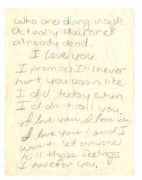 who are dying inside
Actually that aren't
already dead.
I love you.
I promise I'll never
hurt you again like
I did today when
I didn't call you.
I love you, I love you,
I love you! and I
won't let anyone
kill those feelings
I have for you.